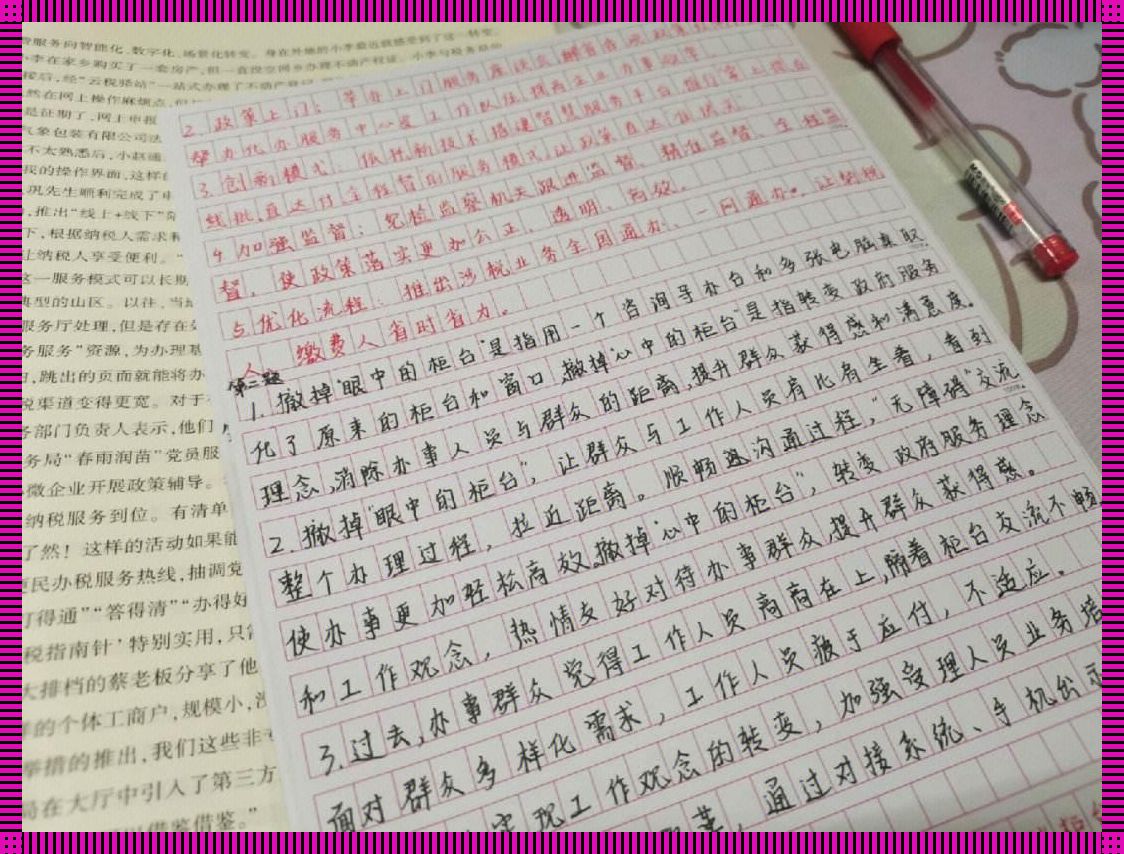 服务向智能化、数字化、场景化转变。身在外地的小李最近就感受到了这一转变。
小李在家乡购买了一套房产，但一直没空回乡办理不动产权证。小李与税务局的
接后，经“云税驿站”一站式办理了不动产登记
然在网上操作麻烦点，但
是征期了，网上申报
气象包装有限公司法
不太熟悉后，小赵通
我的操作界面，这样的
巩先生顺利完成了申
，推出“线上+线下”
下，根据纳税人需求
让纳税人享受便利。”
这一服务模式可以长期
典型的山区。以往，当
服务厅处理，但是存在
务服务”资源，为办理
，跳出的页面就能将办
税渠道变得更宽。对于
务部门负责人表示，他们
务局“春雨润苗”党员服
微企业开展政策辅导。
纳税服务到位。有清单
了然！这样的活动如果能
便民办税服务热线，抽调党
打得通”“答得清”“办得好
税指南针’特别实用，只需
大排档的蔡老板分享了他
样的个体工商户，规模小，没
举措的推出，我们这些非
局在大厅中引入了第三方
以借鉴借鉴。”
2.政策上门：举办上门服务座谈会，解
帮办代办服务中心成工作队伍，提高企业办事效率
3.创新模式：依托新技术搭建智慧服务平台，推行掌上
线批、直达付全程督的服务模式，让政策直达
4.加强监督：纪检监察机关跟进监督、精准监督、全程监
督，使政策落实更加公正、透明、高效。
5.优化流程：推出涉税业务全国通办、一网通办。让纳税
人、缴费人省时省力。
第二题
1.撤掉“眼中的柜台”是指用一个咨询导办台和多张电脑桌取
代了原来的柜台和窗口，撤掉“心中的柜台”是指转变政府服务
理念，消除办事人员与群众的距离，提升群众获得感和满意度。
2.撤掉“眼中的柜台”，让群众与工作人员肩比肩坐着，看到
整个办理过程，拉近距离。顺畅沟通过程，“无障碍”交流
使办事更加轻松高效。撤掉“心中的柜台”，转变政府服务理念
和工作观念，热情友好对待办事群众，提升群众获得感。
3.过去，办事群众觉得工作人员高高在上，隔着柜台交流不畅
面对群众多样化需求，工作人员疲于应付，不适应。
实现工作观念的转变，加强受理人员业务培
通过对接系统、手机